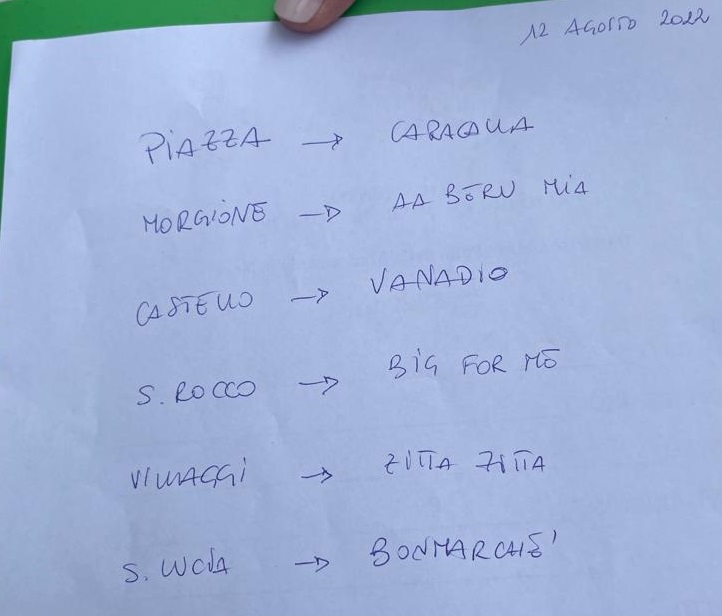 12 AGOSTO 2022
PIAZZA → CARACALLA
MORGIONE → AA BERU MIA
CASTELLO → VANADIO
S. ROCCO → BIG FOR ME
VILLAGGI → ZITTA ZITTA
S. LUCIA → BONMARCHE'